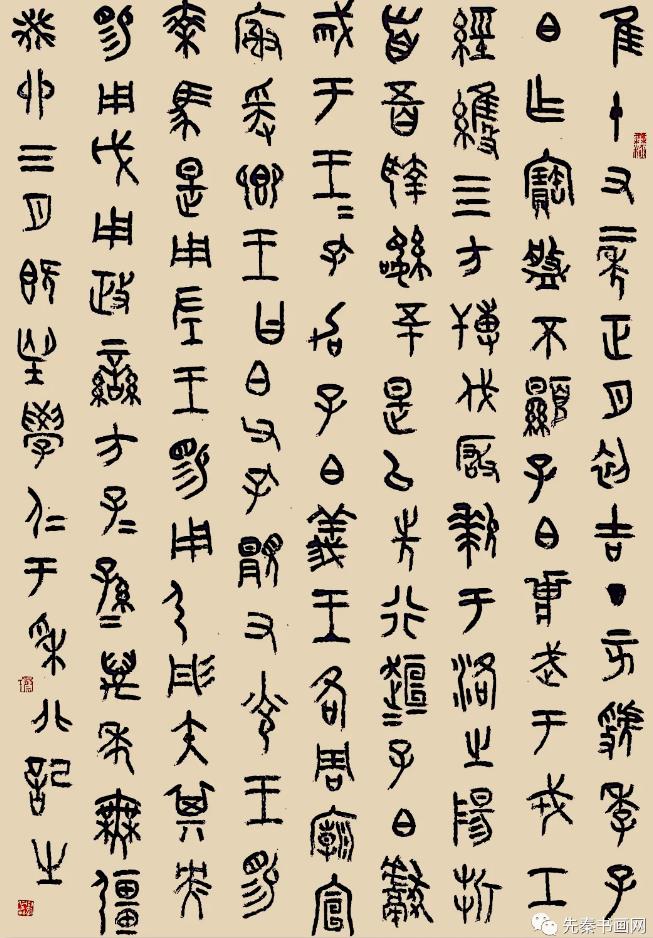 隹十又二年正月初吉丁亥虢季子
白乍寶盤不顯子白壯武于戎工
經維四方搏伐玁狁于洛之陽折
首五百執訊五十是以先行桓=子白獻
馘于王=孔加子白義王各周廟宣
榭爰卿王曰白父孔顯又光王賜
乘馬是用左王賜用弓彤矢其央
賜用戉用政蠻方子=孫=萬年無疆
癸卯三月既望學仁于記之
先秦书画网